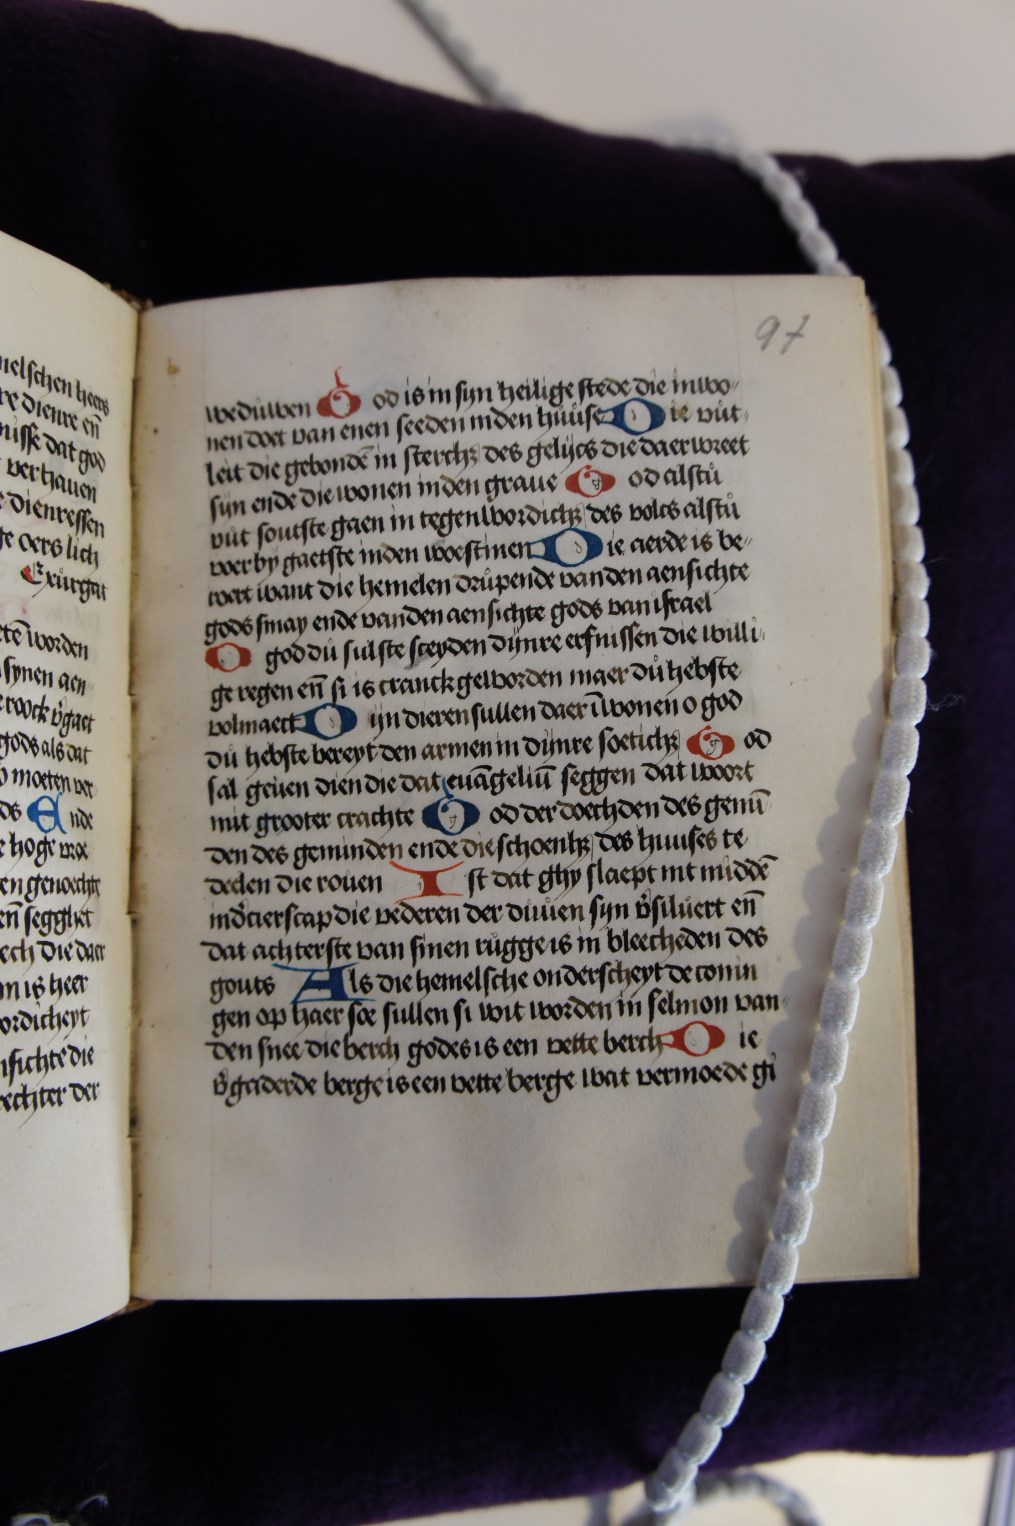 melschen heers
re dienre en̄
nisse dat god
verhauen
e dienressen
ge oers lich
Exurgat
worden
synen aen
roock v̄gaet
gods als dat
moeten ver
ds Ende
e hoge
en genoechte
en̄ segghet
ech die daer
m is heer
ordicheyt
nsichte die
rechter der
97
weduwen God is in syn heilige stede die inwo-
nen doet van enen seeden inden huuse Die vut-
leit die gebondē in sterchz des gelijcs die daer wreet
syn ende die wonen inden graue God alstu
vut soutste gaen in tegenwordichz des volcs alstu
voerby gaetste inden woestinen Die aerde is be-
roert want die hemelen drupende vanden aensichte
gods smay ende vanden aensichte gods van israel
O god du sulste sceyden dynre erfnissen die willi-
ge regen en̄ si is cranck geworden maer du hebste
volmaect Dijn dieren sullen daer ī wonen o god
du hebste bereyt den armen in dynre soetichz God
sal geuen dien die dat euāgeliū seggen dat woort
mit grooter crachte God der doechden des gemī-
den des geminden ende die schoenhz des huuses te
deelen die rouen Ist dat ghy slaept mt middē
in d̄cierscap die vederen der duuen syn v̄siluert en̄
dat achterste van sinen rugge is in bleecheden des
gouts Als die hemelsche onderscheyt de conin
gen op haer soe sullen si wit worden in selmon van
den snee die berch godes is een vette berch Die
v̄gaderde berge is een vette berge wat vermoede gi